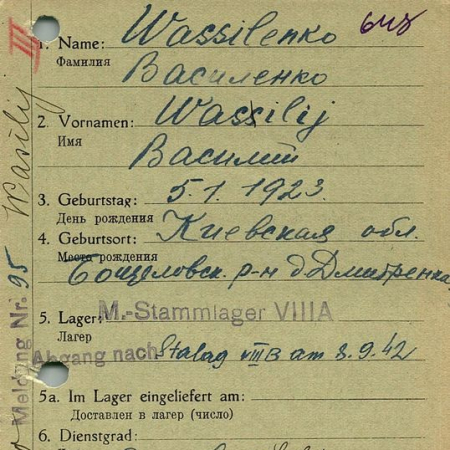 Wassilenko
1. Name:
Фамилия
Василенко
Wassilij
2. Vornamen:
Имя
Василий
3. Geburtstag: 5.1.1923.
День рождения
4. Geburtsort: Киевская обл.
Место рождения
р-н д Дмитренка
M.-Stammlager VIIIA
5. Lager:
Лагер
Abgang nach Stalag VIIIB am 3.9.42
5a. Im Lager eingeliefert am:
Доставлен в лагер (число)
6. Dienstgrad:
III
Wasilij
Meldung Nr. 95